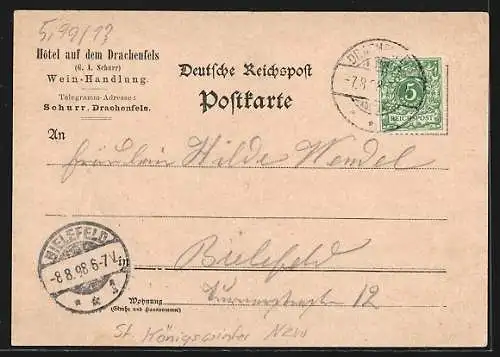 5,99/13
Hôtel auf dem Drachenfels
(G. A. Schurr)
Wein-Handlung.
Telegramm-Adresse:
Schurr, Drachenfels.
Deutsche Reichspost
Postkarte
5
REICHSPOST
An
Fräulein Hilde Wendel
Bielefeld
in
BIELEFELD
-8.8.98.6-7V.
Wohnung
(Straße und Hausnummer)
12
St. Königswinter